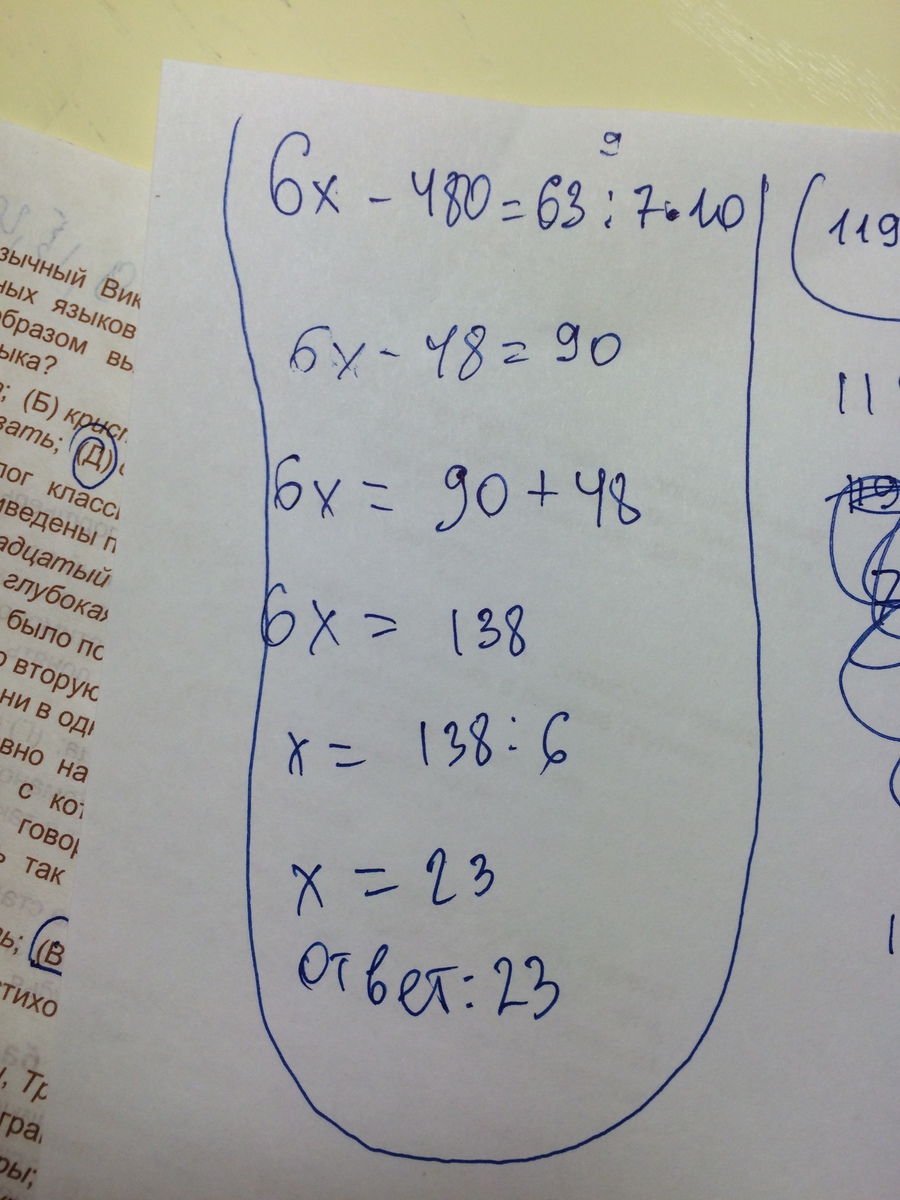 9
6x - 480 = 63 : 7 · 10
6x - 48 = 90
6x = 90 + 48
6x = 138
x = 138 : 6
x = 23
ответ: 23
119
11
зычный Вик
ных языков
образом вы
ыка?
(Б) крист
зать; (Д)
лог класс
иведены п
адцатый
глубокая
было по
о вторую
ни в одн
вно на
с кот
говор
ь так
ь; (В
стихо
, Тр
гра
ры;